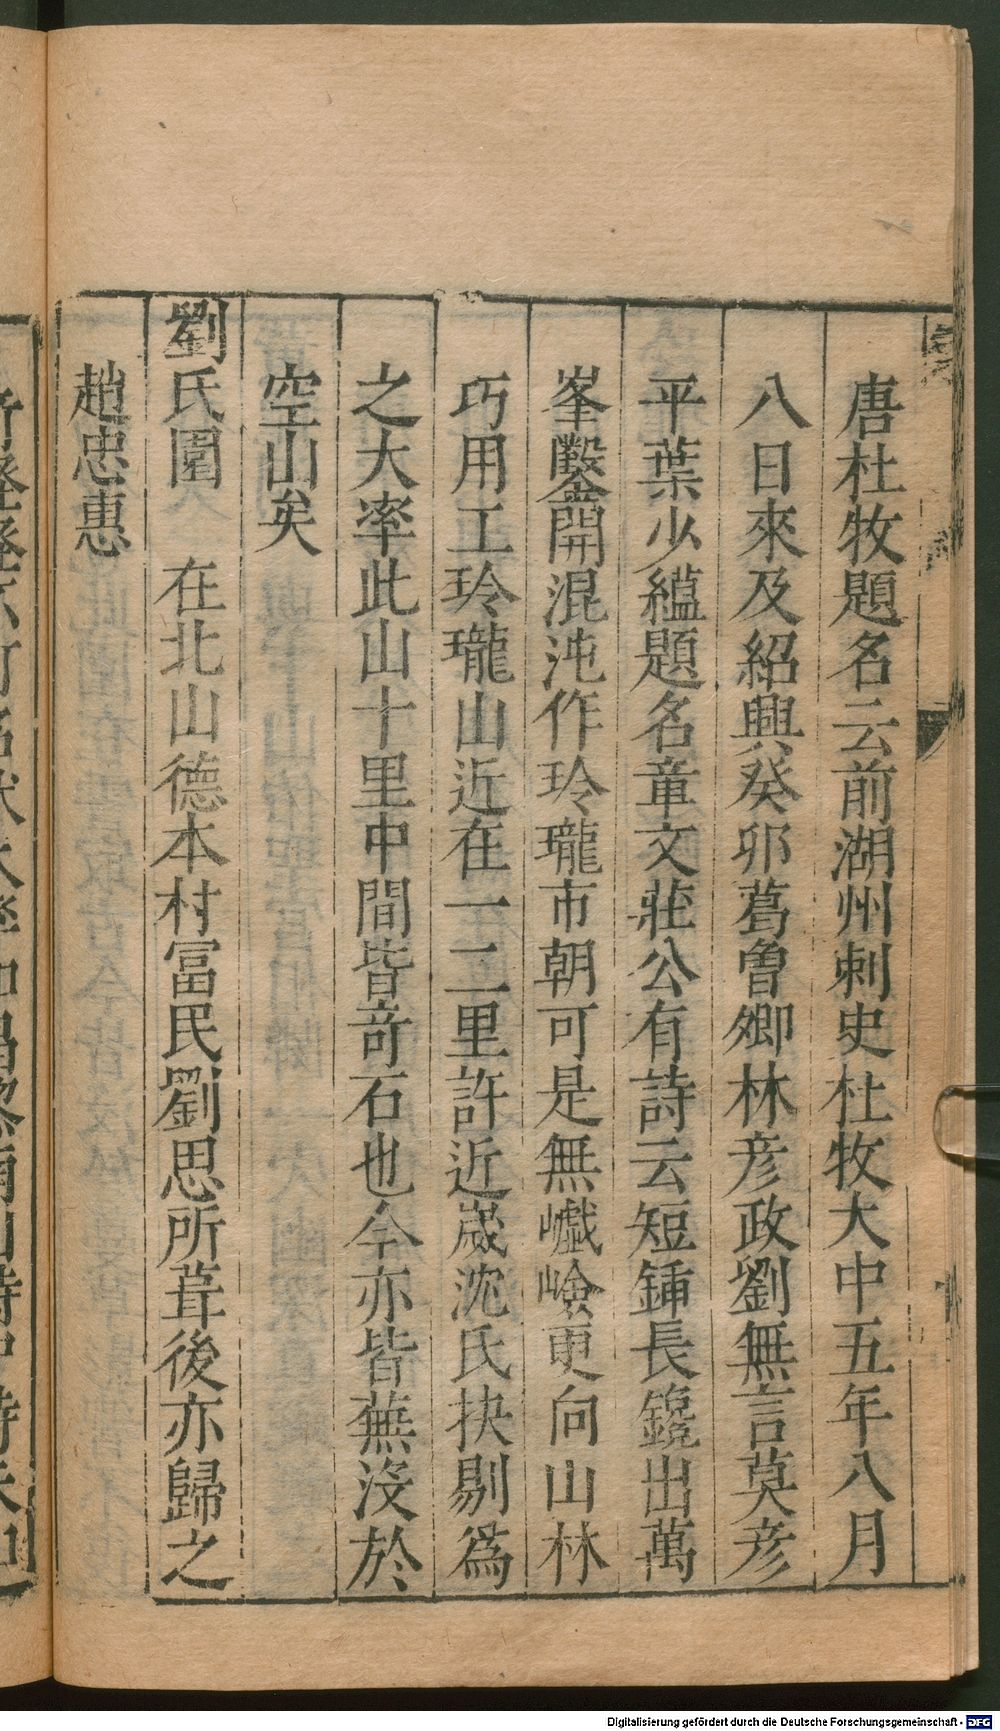 唐杜牧題名云前湖州刺史杜牧大中五年八月
八日來及紹興癸卯葛魯卿林彦政劉無言莫彦
平葉少緼題名章文莊公有詩云短鍤長鑱出萬
峯鑿開混沌作玲瓏市朝可是無巇嶮更向山林
巧用工玲瓏山近在一二里許近嵗沈氏抉剔爲
之大率此山十里中間皆竒石也今亦皆蕪沒於
空山矣
劉氏園 在北山德本村富民劉思所葺後亦歸之
趙忠惠
Digitalisierung gefördert durch die Deutsche Forschungsgemeinschaft - DFG